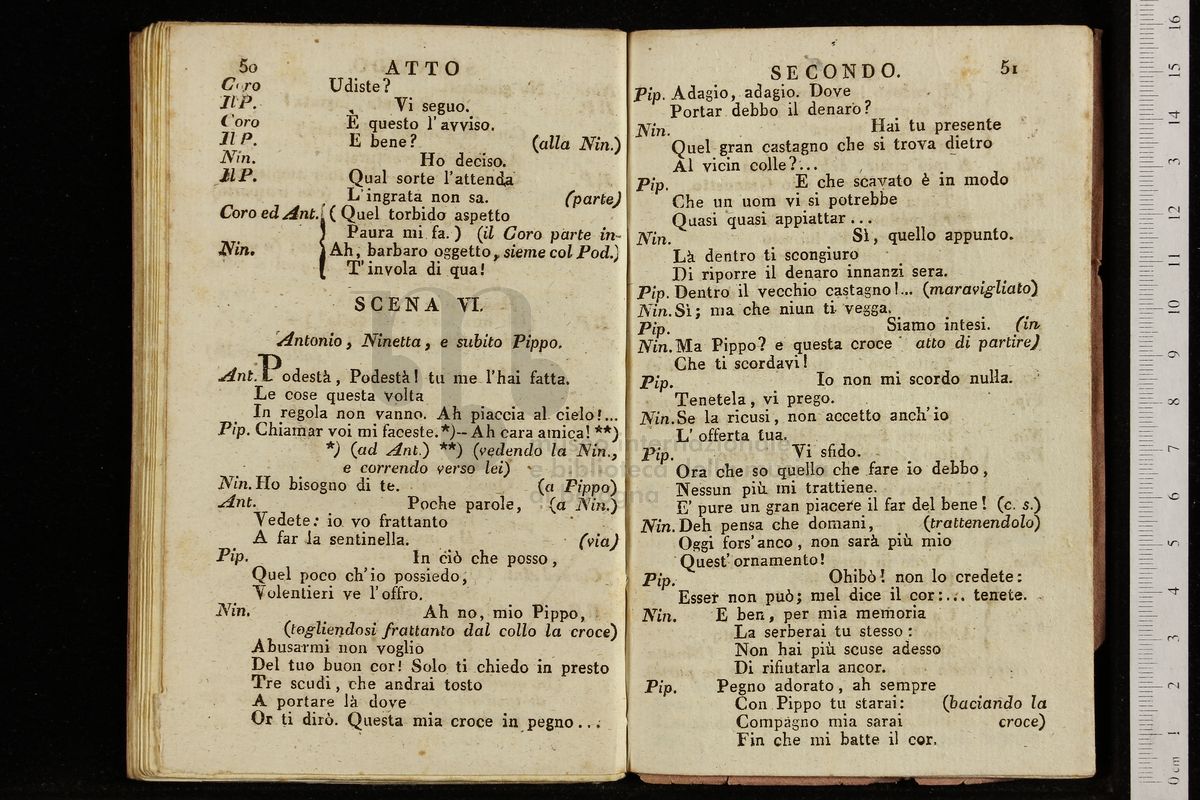 50 ATTO
Coro Udiste?
Il P. Vi seguo.
Coro È questo l'avviso.
Il P. E bene? (alla Nin.)
Nin. Ho deciso.
Il P. Qual sorte l'attenda
L'ingrata non sa. (parte)
Coro ed Ant. ( Quel torbido aspetto
Paura mi fa. ) (il Coro parte in-
Nin. Ah, barbaro oggetto, sieme col Pod.)
T'invola di qua!
SCENA VI.
Antonio, Ninetta, e subito Pippo.
Ant. Podestà, Podestà! tu me l'hai fatta.
Le cose questa volta
In regola non vanno. Ah piaccia al cielo!...
Pip. Chiamar voi mi faceste.*)-- Ah cara amica! **)
*) (ad Ant.) **) (vedendo la Nin.,
e correndo verso lei)
Nin. Ho bisogno di te. (a Pippo)
Ant. Poche parole, (a Nin.)
Vedete: io vo frattanto
A far la sentinella. (via)
Pip. In ciò che posso,
Quel poco ch'io possiedo,
Volentieri ve l'offro.
Nin. Ah no, mio Pippo,
(togliendosi frattanto dal collo la croce)
Abusarmi non voglio
Del tuo buon cor! Solo ti chiedo in presto
Tre scudi, che andrai tosto
A portare là dove
Or ti dirò. Questa mia croce in pegno...
SECONDO. 51
Pip. Adagio, adagio. Dove
Portar debbo il denaro?
Nin. Hai tu presente
Quel gran castagno che si trova dietro
Al vicin colle?...
Pip. E che scavato è in modo
Che un uom vi si potrebbe
Quasi quasi appiattar...
Nin. Sì, quello appunto.
Là dentro ti scongiuro
Di riporre il denaro innanzi sera.
Pip. Dentro il vecchio castagno!... (maravigliato)
Nin. Sì; ma che niun ti vegga.
Pip. Siamo intesi. (in
Nin. Ma Pippo? e questa croce atto di partire)
Che ti scordavi!
Pip. Io non mi scordo nulla.
Tenetela, vi prego.
Nin. Se la ricusi, non accetto anch'io
L'offerta tua.
Pip. Vi sfido.
Ora che so quello che fare io debbo,
Nessun più mi trattiene.
E' pure un gran piacere il far del bene! (c. s.)
Nin. Deh pensa che domani, (trattenendolo)
Oggi fors'anco, non sarà più mio
Quest'ornamento!
Pip. Ohibò! non lo credete:
Esser non può; mel dice il cor:... tenete.
Nin. E ben, per mia memoria
La serberai tu stesso:
Non hai più scuse adesso
Di rifiutarla ancor.
Pip. Pegno adorato, ah sempre
Con Pippo tu starai: (baciando la
Compagno mia sarai croce)
Fin che mi batte il cor.
museo internazionale
e biblioteca della musica
di bologna
0 cm 1 2 3 4 5 6 7 8 9 10 11 12 13 14 15 16